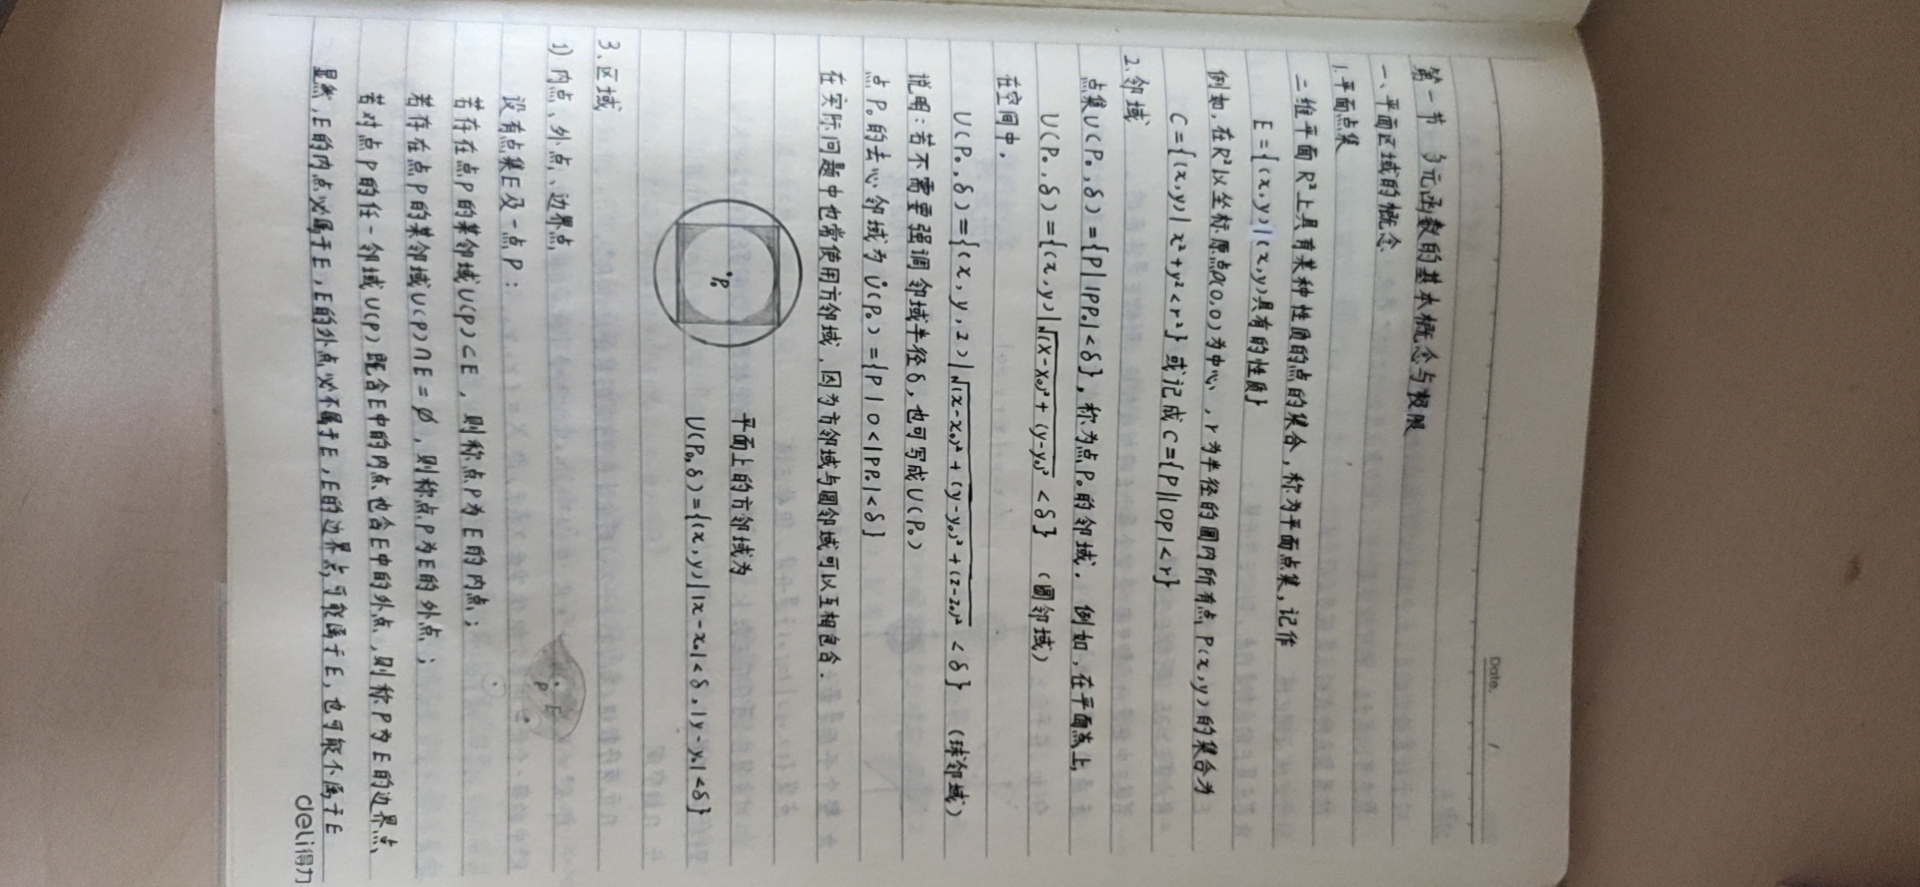 Date.    /
第一节 多元函数的基本概念与极限
一、平面区域的概念
1.平面点集
二维平面R²上具有某种性质的点的集合,称为平面点集,记作
E={(x,y)|(x,y)具有的性质}
例如,在R²以坐标原点O(0,0)为中心,r为半径的圆内所有点P(x,y)的集合为
C={(x,y)|x²+y²<r²}或记成C={P||OP|<r}
2.邻域
点集U(P₀,δ)={P||PP₀|<δ},称为点P₀的邻域.例如,在平面上,
U(P₀,δ)={(x,y)|√(x-x₀)²+(y-y₀)²<δ} (圆邻域)
在空间中,
U(P₀,δ)={(x,y,z)|√(x-x₀)²+(y-y₀)²+(z-z₀)²<δ} (球邻域)
说明:若不需要强调邻域半径δ,也可写成U(P₀)
点P₀的去心邻域为Ů(P₀)={P|0<|PP₀|<δ}
在实际问题中也常使用方邻域,因为方邻域与圆邻域可以互相包含.
平面上的方邻域为
P₀
U(P₀,δ)={(x,y)||x-x₀|<δ,|y-y₀|<δ}
3.区域
1)内点、外点、边界点
设有点集E及一点P:
P E
若存在点P的某邻域U(P)⊂E,则称点P为E的内点;
若存在点P的某邻域U(P)∩E=∅,则称点P为E的外点;
若对点P的任一邻域U(P)既含E中的内点也含E中的外点,则称P为E的边界点
显然,E的内点必属于E,E的外点必不属于E,E的边界点可能属于E,也可能不属于E
deli得力